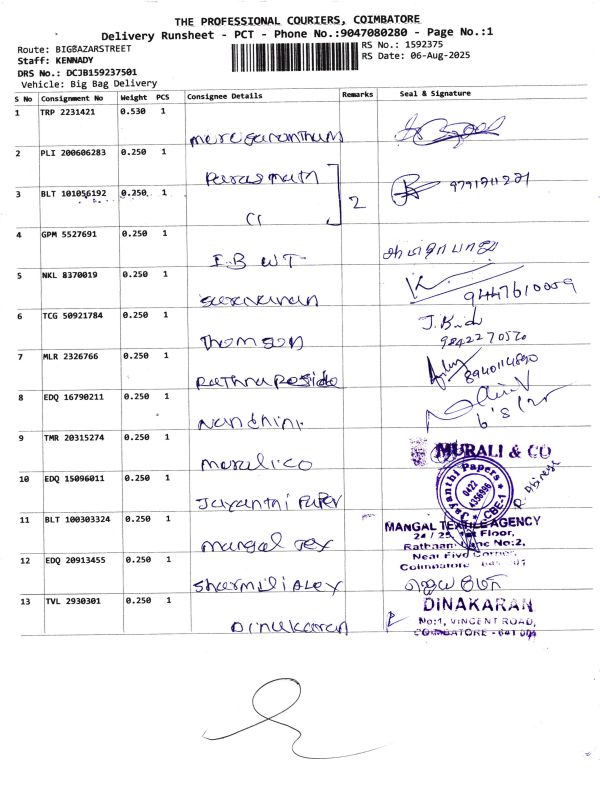 THE PROFESSIONAL COURIERS, COIMBATORE
Delivery Runsheet - PCT - Phone No.:9047080280 - Page No.:1
Route: BIGBAZARSTREET
RS No.: 1592375
Staff: KENNADY
RS Date: 06-Aug-2025
DRS No.: DCJB159237501
Vehicle: Big Bag Delivery
S No Consignment No Weight PCS Consignee Details Remarks Seal & Signature
1 TRP 2231421 0.530 1
2 PLI 200606283 0.250 1
Parasmath
3 BLT 101056192 0.250 1 2
4 GPM 5527691 0.250 1
I.B WT
5 NKL 8370019 0.250 1
Saravanan 9447610009
6 TCG 50921784 0.250 1
Thomson 9842270520
7 MLR 2326766 0.250 1
8940114890
8 EDQ 16790211 0.250 1
Nandhini
9 TMR 20315274 0.250 1
Murali co MURALI & CO
10 EDQ 15096011 0.250 1
Jayanthi Paper Jayanthi Papers CBE-1
11 BLT 100303324 0.250 1
Mangal Tex MANGAL TEXTILE AGENCY
24 / 25, 1st Floor,
12 EDQ 20913455 0.250 1
Near Five Corner,
Coimbatore
Sharmili Alex
13 TVL 2930301 0.250 1
Dinakaran DINAKARAN
No:1, VINCENT ROAD,
COIMBATORE - 641 001